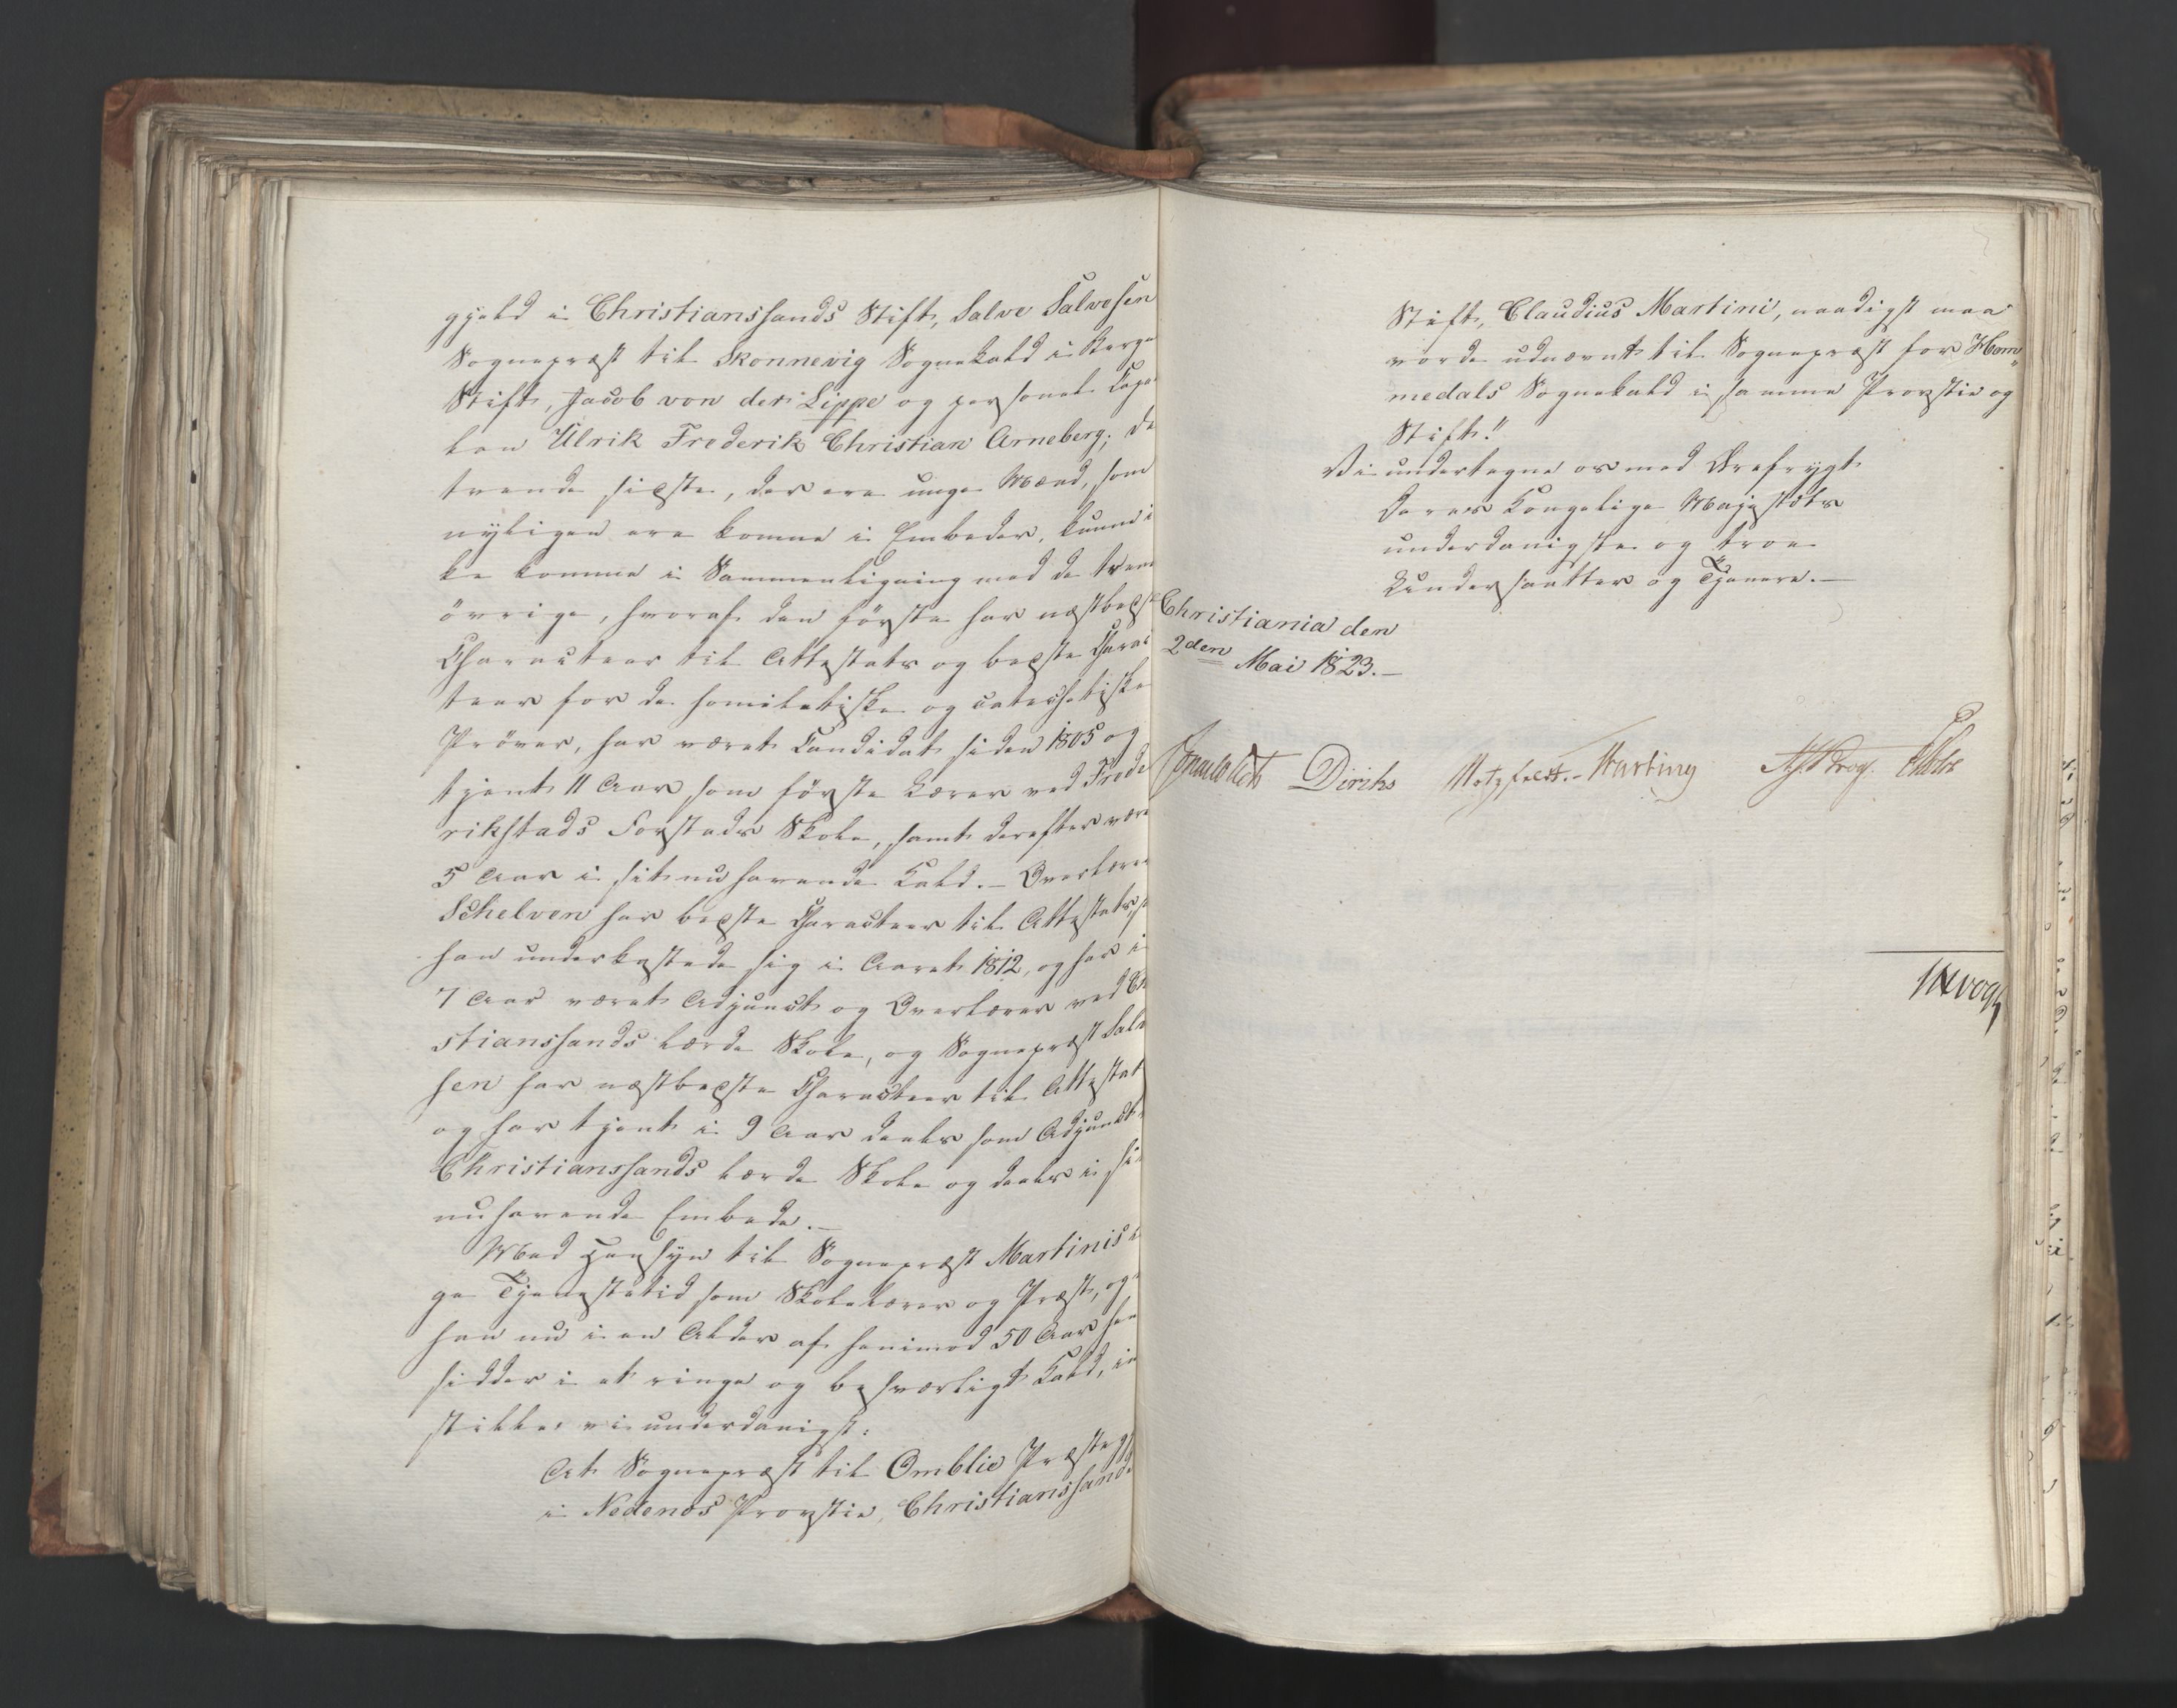 gjeld i Christianssands Stift, Salve Salvesen
Sognepræst til Skonnevig Sognekald i Berge
Stift, Jacob von der Lippe og personel Cape
lan Ulrik Frederik Christian Arneberg; de
tvende sidste, der ere unge Mænd, som
nyligen ere komne i Embeder, kunne i
ke komme i Sammenligning med de tvende
øvrige, hvoraf den første har næstbedste
Characteer til Attestats og bedste Charac
teer for de homiletiske og catechetiske
Prøver, har været Candidat siden 1805 og
tjent 11 Aar som første Lærer ved Frede
rikstads Forstads Skole, samt derefter være
5 Aar i sit nuhavende Kald. - Overlærer
Schelven har bedste Characteer til Attestats,
han underkastede sig i Aaret 1812, og har i
7 Aar været Adjunct og Overlærer ved Ch
stianssands lærde Skole, og Sognepræst Salve
sen har næstbedste Characteer til Attestat
og har tjent i 9 Aar deels som Adjunct
Christianssands lærde Skole og deels i si
nuhavende Embede. -
Med Hensyn til Sognepræst Martinis
ge Tjenestetid som Skolelærer og Præst, og
han nu i en Alder af henimod 50 Aar hen
sidder i et ringe og besværligt Kald, in
stille vi underdanigst:
At Sognepræst til Omblie Præsteg
i Nedenes Provstie, Christianssands
Stift, Claudius Martini, naadigst maa
vorde udnævnt til Sognepræst for Hom„
medals Sognekald i samme Provstie og
Stift."
Vi undertegne os med Ærefrygt
Deres Kongelige Majestæts
underdanigste og troe
Undersaatter og Tjenere. -
Christiania den
2den Mai 1823. -
Sommerhielm Diriks Motzfeldt. - Harting Krog. Holst